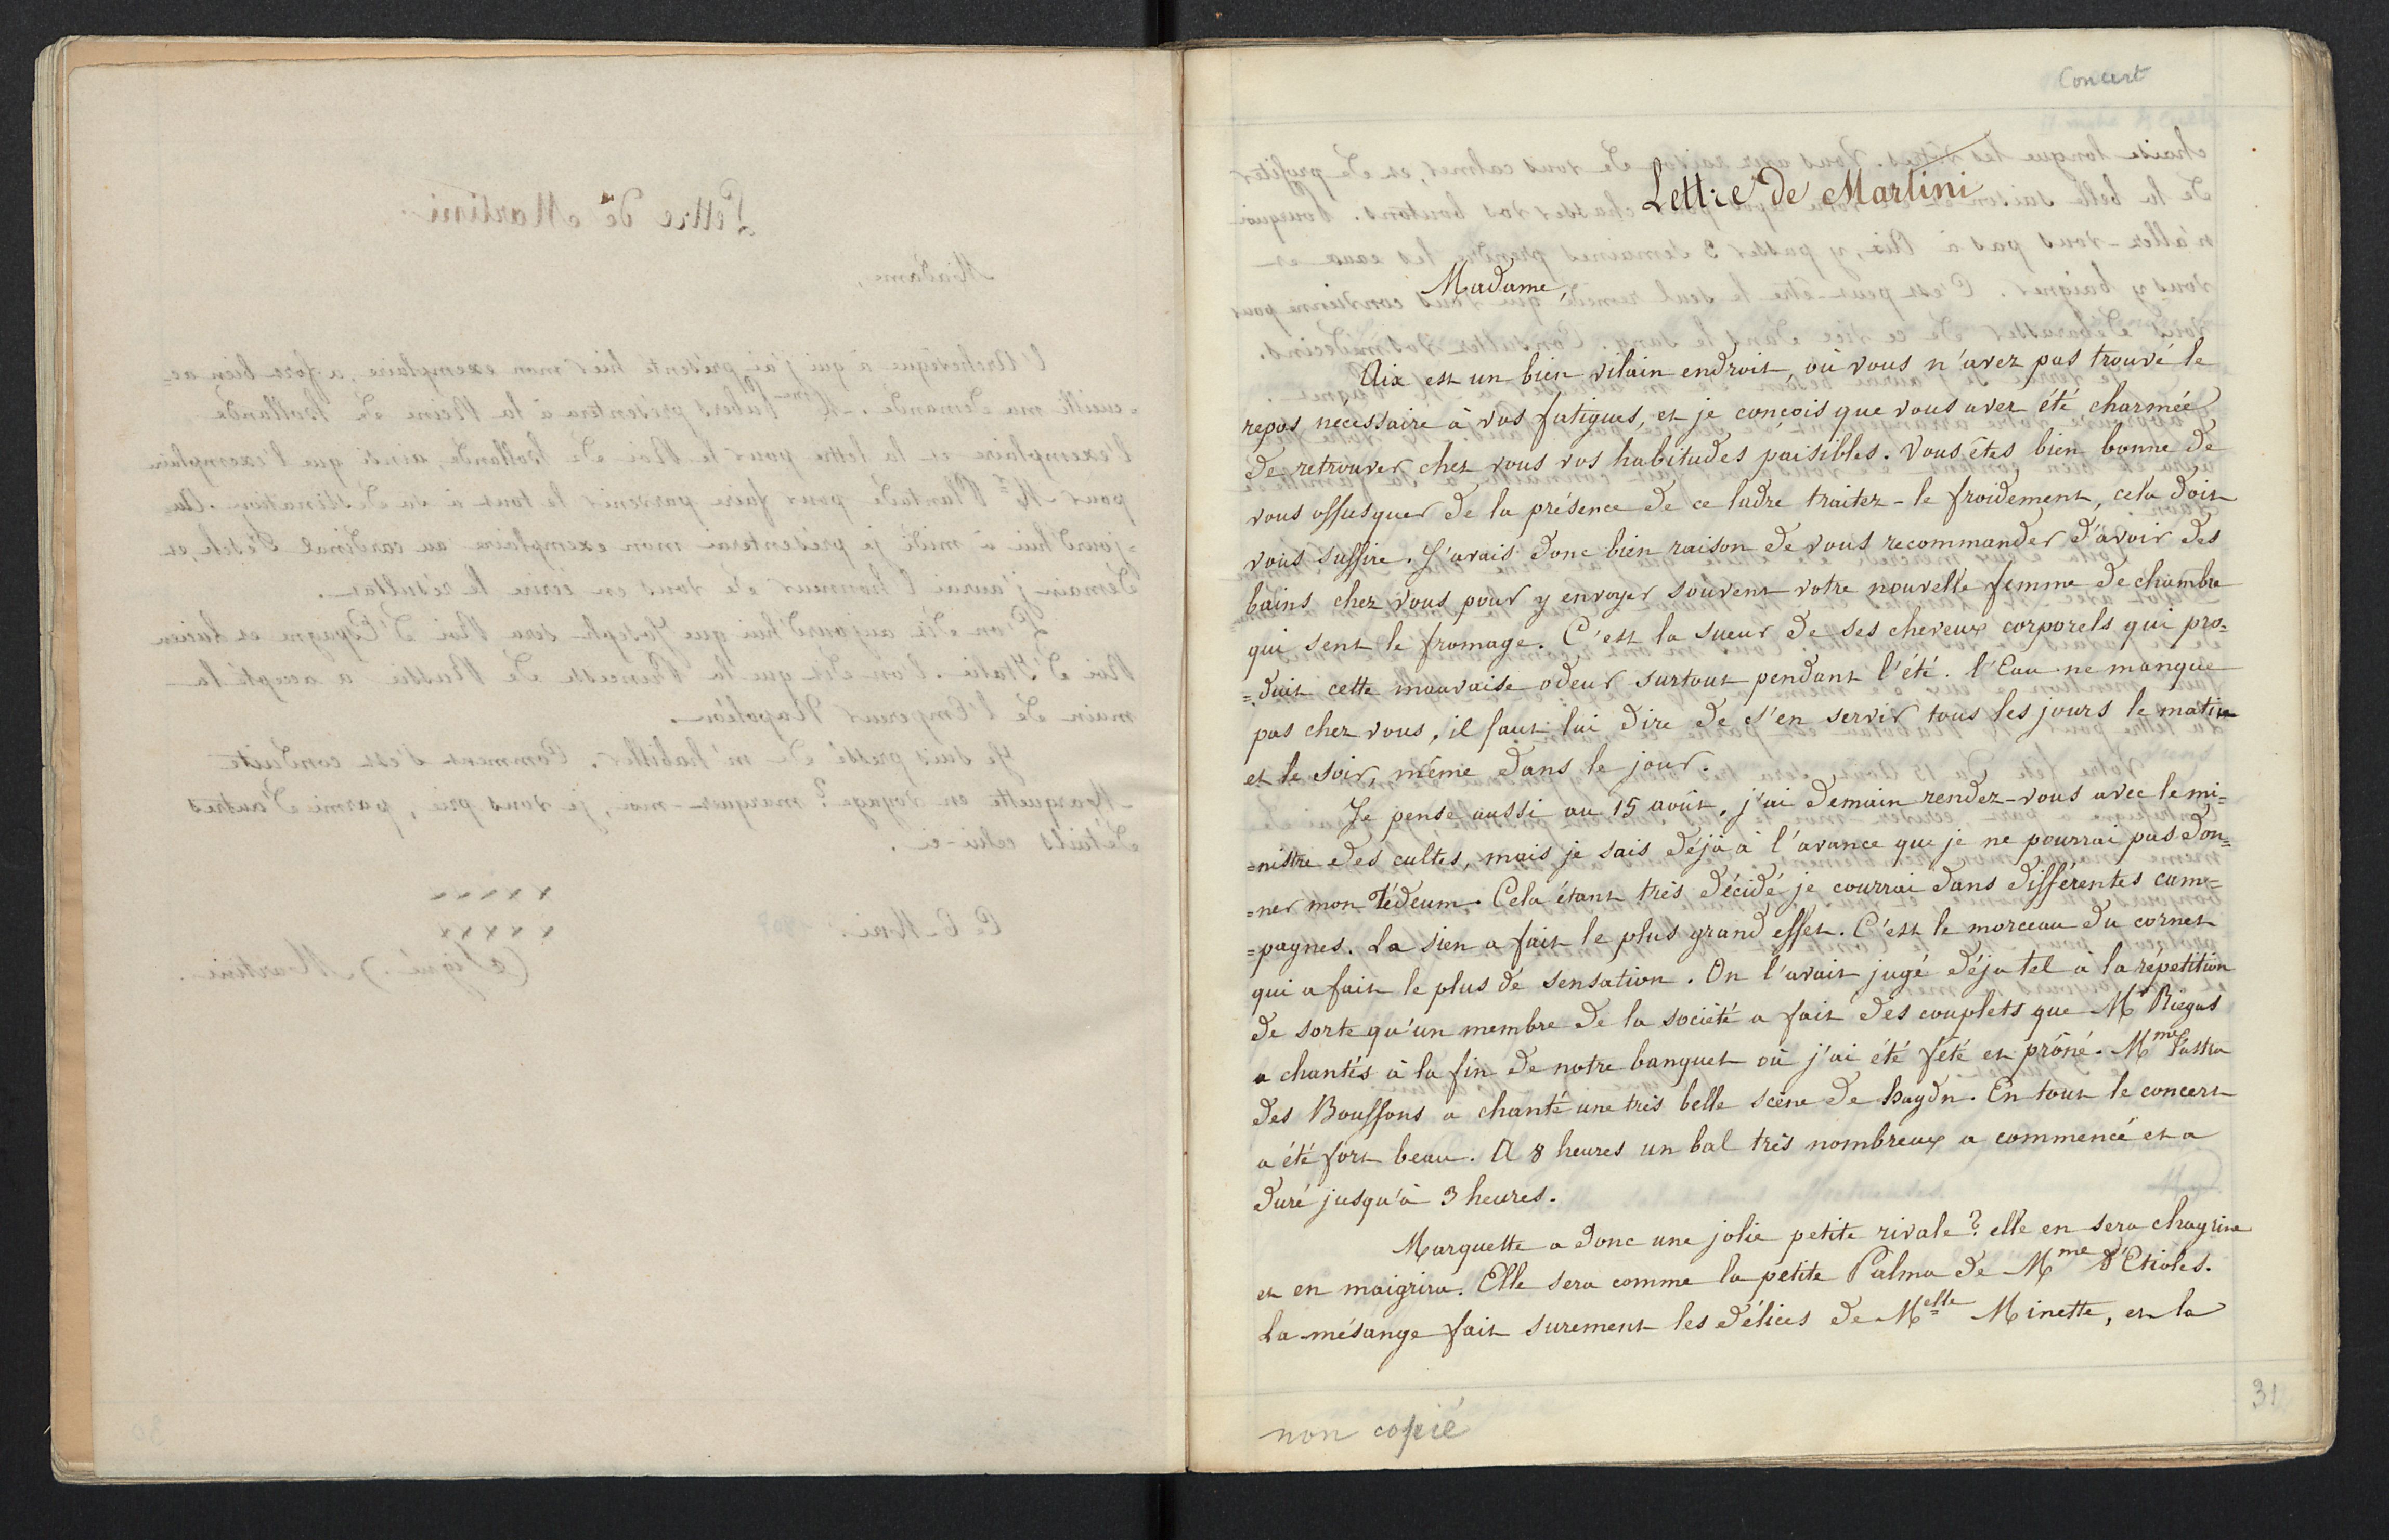 Concert
Lettre de Martini
Madame,
Aix est un bien vilain endroit, où vous n'avez pas trouvé le
repos necessaire à vos fatigues, et je conçois que vous avez été charmée
de retrouver chez vous vos habitudes paisibles. Vous êtes bien bonne de
vous offusquer de la présence de ce ladre traitez-le froidement, cela doit
vous suffire. J'avais donc bien raison de vous recommander d'avoir des
bains chez vous pour y envoyer souvent votre nouvelle femme de chambre
qui sent le fromage. C'est la sueur de ses cheveux corporels qui pro=
=duit cette mauvaise odeur surtout pendant l'été. l'Eau ne manque
pas chez vous, il faut lui dire de s'en servir tous les jours le matin
et le soir, même dans le jour.
Je pense aussi au 15 août, j'ai demain rendez-vous avec le mi=
=nistre des cultes, mais je sais déjà à l'avance que je ne pourrai pas don=
=ner mon Tédeum. Cela étant très décidé je courrai dans différentes cam=
=pagnes. La sien a fait le plus grand effet. C'est le morceau du cornet
qui a fait le plus de sensation. On l'avait jugé déja tel à la répetition
de sorte qu'un membre de la société a fait des couplets que Mr Riegas
a chantés à la fin de notre banquet où j'ai été fêté et prôné. Mme
des Bouffons a chanté une très belle scène de haydn. En tout le concert
a été fort beau. A 8 heures un bal très nombreux a commencé et a
duré jusqu'à 3 heures.
Marquette a donc une jolie petite rivale? elle en sera chagrine
et en maigrira. Elle sera comme la petite Palma de Mme d'Etioles.
La mésange fait surement les délices de Melle Minette, et la
non copié
31